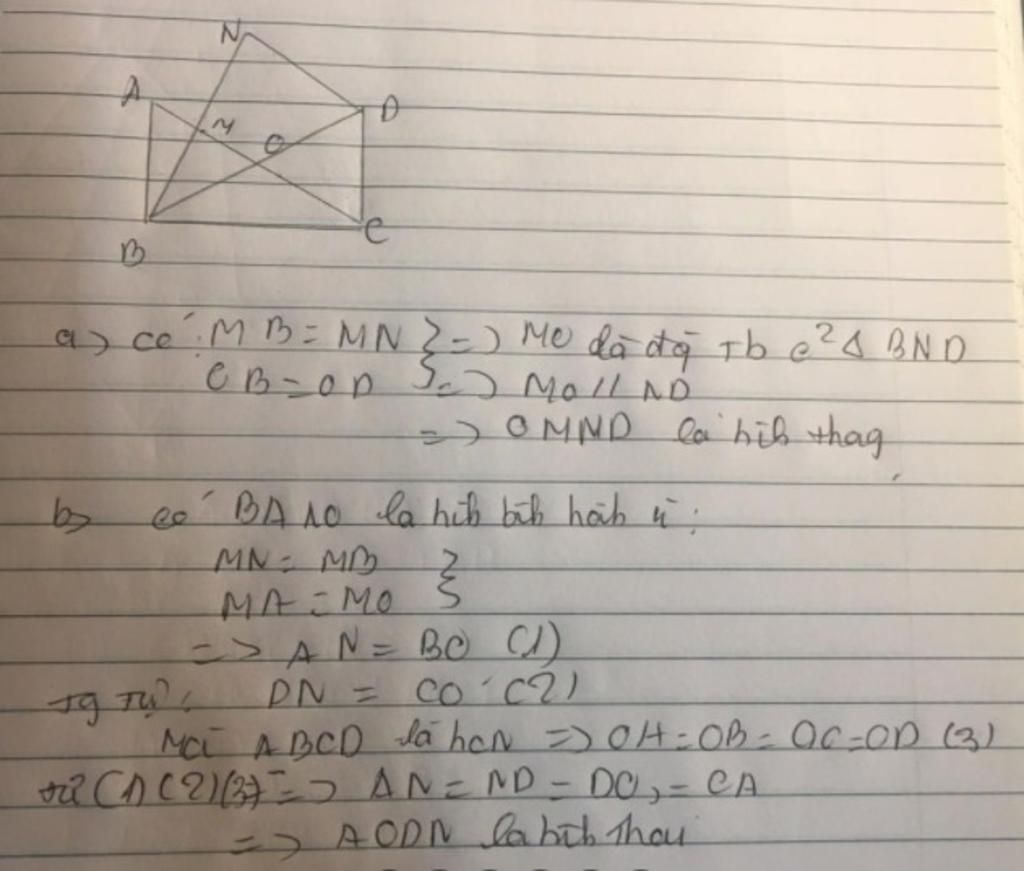 N
A
D
M
O
B
C
a) có: MB = MN } => MO là đg̀ tb c² Δ BND
OB = OD } => MO // ND
=> OMND là hìh thag
b) có BANO là hìh bìh hàh vì:
MN = MB }
MA = MO }
=> AN = BO (1)
tg tự: DN = CO (2)
Mà ABCD là hcN => OA = OB = OC = OD (3)
từ (1) (2) (3) => AN = ND = DO = OA
=> AODN là hìh thoi